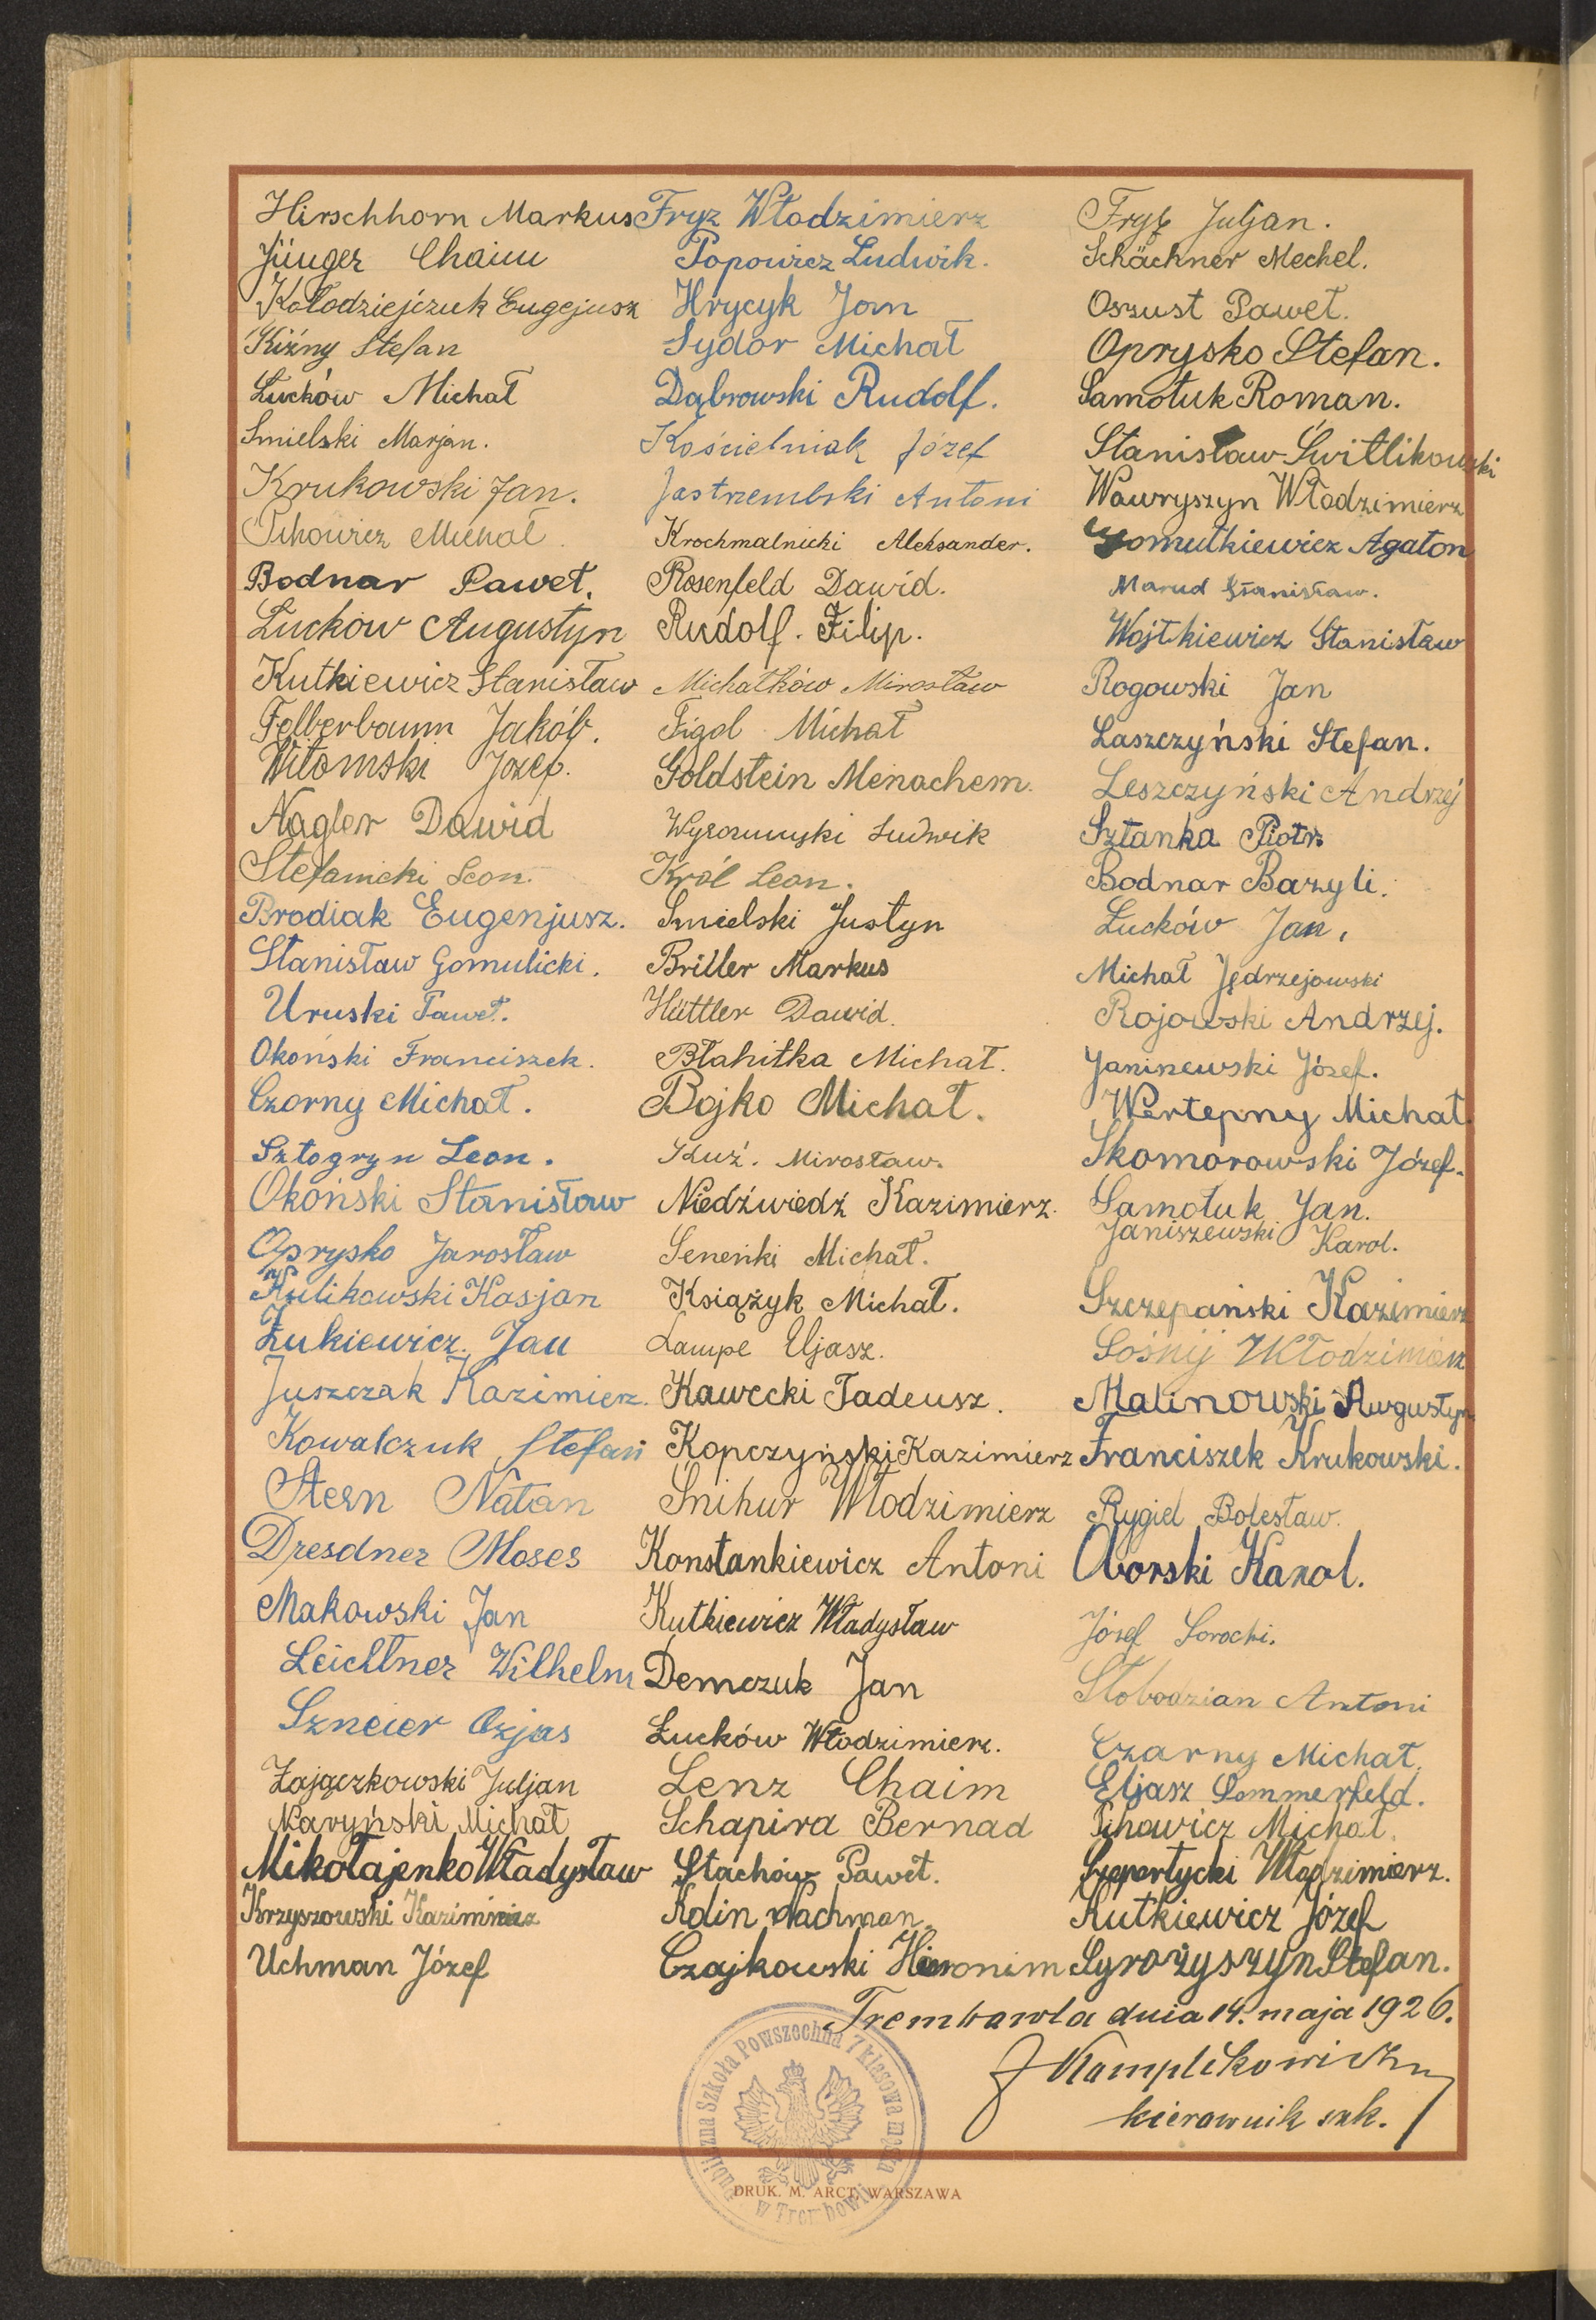 Hirschhorn Markus
Jünger Chaim
Kołodziejczuk Eugejusz
Kiźny Stefan
Łucków Michał
Smielski Marjan.
Krukowski Jan.
Pihowicz Michał.
Bodnar Paweł.
Łucków Augustyn
Kutkiewicz Stanisław
Felberbaum Jakób.
Witomski Józef.
Nagler Dawid
Stefanicki Leon.
Brodiak Eugenjusz.
Stanisław Gomulicki.
Uruski Paweł.
Okoński Franciszek.
Czorny Michał.
Sztogryn Leon.
Okoński Stanisław
Oprysko Jarosław
Kulikowski Kasjan
Żukiewicz Jan
Juszczak Kazimierz.
Kowalczuk Stefan
Stern Natan
Dresdner Moses
Makowski Jan
Leichtner Wilhelm
Szneier Ozjas
Zajączkowski Juljan
Naryński Michał
Mikołajenko Władysław
Krzyszowski Kazimierz
Uchman Józef
Fryz Włodzimierz
Popowicz Ludwik.
Hrycyk Jan
Sydor Michał
Dąbrowski Rudolf.
Kościelniak Józef
Jastrzembski Antoni
Krochmalnicki Aleksander.
Rosenfeld Dawid.
Rudolf. Filip.
Michałków Mirosław
Figol Michał
Goldstein Menachem.
Ludwik
Król Leon.
Smielski Justyn
Briller Markus
Hüttler Dawid.
Błahitka Michał.
Bojko Michał.
Kuź. Mirosław.
Niedźwiedź Kazimierz.
Seneńki Michał.
Książyk Michał.
Lampe Eljasz.
Kawecki Tadeusz.
Kopczyński Kazimierz
Śnihur Włodzimierz
Konstankiewicz Antoni
Kutkiewicz Władysław
Demczuk Jan
Łucków Włodzimierz.
Lenz Chaim
Schapira Bernad
Stachów Paweł.
Kolin Nachman.
Czajkowski Hieronim
Fryz Juljan.
Schächner Mechel.
Oszust Paweł.
Oprysko Stefan.
Samołuk Roman.
Stanisław Świtlikowski
Wawryszyn Włodzimierz
Gomułkiewicz Agaton
Marud Stanisław.
Wojtkiewicz Stanisław
Rogowski Jan
Laszczyński Stefan.
Leszczyński Andrzej
Sztanka Piotr
Bodnar Bazyli.
Łucków Jan,
Michał Jędrzejowski
Rojowski Andrzej.
Janinewski Józef.
Wertepny Michał.
Skomorowski Józef.
Samołuk Jan.
Janiszewski Karol.
Szczepański Kazimierz
Sośnij Włodzimierz
Malinowski Augustyn
Franciszek Krukowski.
Rygiel Bolesław.
Oborski Karol.
Józef Sorocki.
Słobodzian Antoni
Czarny Michał.
Eljasz Sommerfeld.
Pihowicz Michał.
Szepertycki Włodzimierz.
Kutkiewicz Józef
Syrożyszyn Stefan.
Trembowla dnia 14. maja 1926.
kierownik szk.
Publiczna Szkoła Powszechna 7 klasowa męska
w Trembowli
DRUK. M. ARCT, WARSZAWA